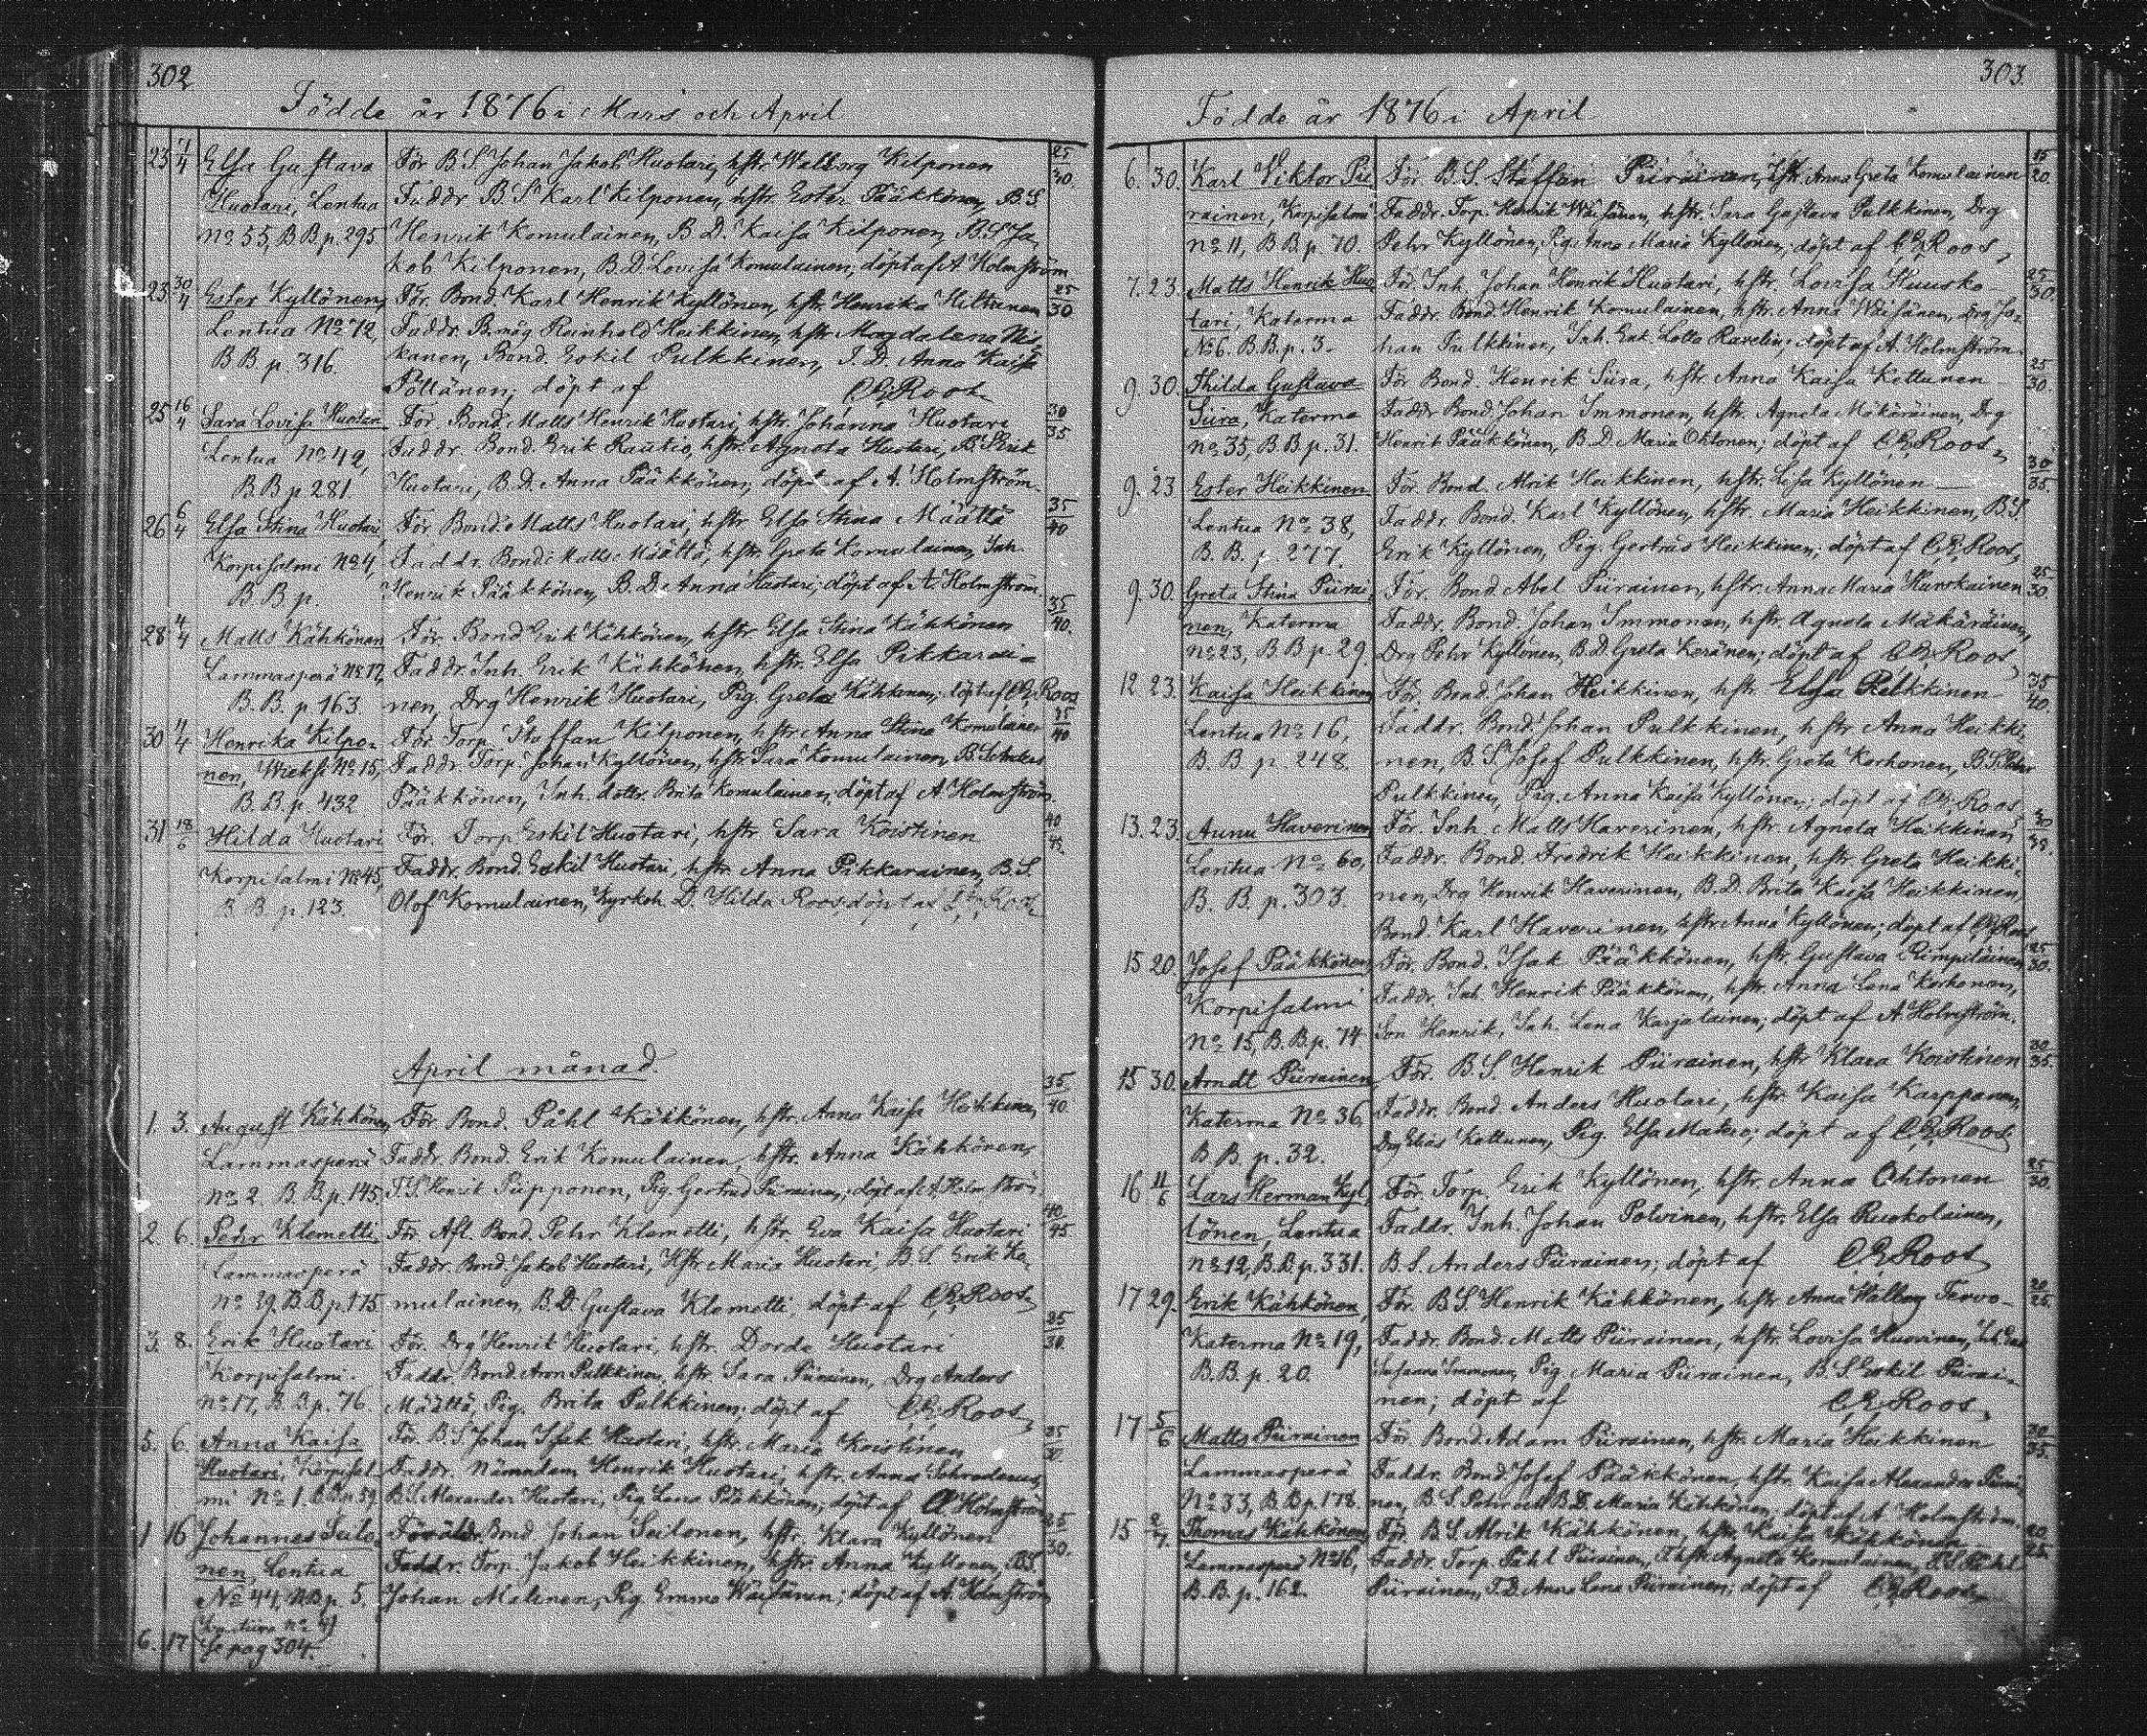 302
Födde år 1876 i Mars och April
23 7/4 Elsa Gustava För. B.S. Johan Jakob Huotari, hstr. Walborg Kilponen 25/30.
Huotari, Lentua Faddr. B.S. Karl Kilponen, hstr. Ester Pääkkönen, B.S.
No 55, B.B.p. 295 Henrik Komulainen, B.D. Kaisa Kilponen, B.S. Ja-
kob Kilponen, B.D. Lovisa Komulainen; döpt af A. Holmström
23 30/4 Ester Kyllönen, För. Bond. Karl Henrik Kyllönen, hstr. Henrika Hiltunen 25/30
Lentua No 72, Faddr. B.måg Reinhold Heikkinen, hstr. Magdalena Nis-
B.B.p. 316. kanen, Bond. Eskil Pulkkinen, T.D. Anna Kaisa
Pöllänen; döpt af C.E. Roos
25 16/4 Sara Lovisa Huotari För. Bond. Matts Henrik Huotari, hstr. Johanna Huotari 30/35
Lentua No 42, Faddr. Bond. Erik Rautio, hstr. Agneta Huotari, B.S. Erik
B.B.p 281. Huotari, B.D. Anna Pääkkönen; döpt af A. Holmström.
26 6/4 Elsa Stina Huotari, För. Bond. Matts Huotari, hstr. Elsa Stina Määttä 35/40
Korpisalmi No 4, Faddr. Bond. Matts Määttä, hstr. Greta Komulainen, Inh.
B.B.p. Henrik Pääkkönen, B.D. Anna Huotari; döpt af A. Holmström.
28 4/4 Matts Kähkönen För. Bond. Erik Kähkönen, hstr. Elsa Stina Kähkönen 35/40.
Lammasperä No 17, Faddr. Inh. Erik Kähkönen, hstr. Elsa Pikkarai-
B.B.p. 163. nen, Drg Henrik Huotari, Pig. Greta Kähkönen; döpt af C.E. Roos
30 4/4 Henrika Kilpo- För. Torp. Staffan Kilponen, hstr. Anna Stina Komulainen 35/40
nen, Wieksi No 15, Faddr. Torp. Johan Kyllönen, hstr. Sara Komulainen, B.S.
B.B.p. 432 Pääkkönen, Inh. dotter. Brita Komulainen; döpt af A. Holmström.
31 18/6 Hilda Huotari För. Torp. Eskil Huotari, hstr. Sara Koistinen 40/45.
Korpisalmi No 45, Faddr. Bond. Eskil Huotari, hstr. Anna Pikkarainen, B.S.
B.B.p. 123. Olof Komulainen, Kyrkoh. D. Hilda Roos, döpt af C.E. Roos
April månad.
1. 3. August Kähkönen För. Bond. Påhl Kähkönen, hstr. Anna Kaisa Heikkinen, 35/40.
Lammasperä Faddr. Bond. Erik Komulainen, hstr. Anna Kähkönen,
No 2. B.B.p. 145. T.S. Henrik Piipponen, Pig. Gertrud Piirainen; döpt af A. Holmström
2. 6. Pehr Klemetti, För. Afl. Bond. Pehr Klemetti, hstr. Eva Kaisa Huotari 40/45
Lammasperä Faddr. Bond. Jakob Huotari, Hstr. Maria Huotari, B.S. Erik Ko-
No 29. B.B.p. 175 mulainen, B.D. Gustava Klemetti, döpt af C.E. Roos
3. 8. Erik Huotari För. Drg Henrik Huotari, hstr. Dorda Huotari 25/30.
Korpisalmi. Faddr. Bond. Aron Pulkkinen, hstr. Sara Piirainen, Drg Anders
No 17, B.B.p. 76. Määttä, Pig. Brita Pulkkinen; döpt af C.E. Roos
5. 6. Anna Kaisa För. B.S. Johan Isak Huotari, hstr. Maria Koistinen
Huotari, Korpisal- Faddr. Nämndem. Henrik Huotari, hstr. Anna Schroderus,
mi No 1. B.B.p 59. B.S. Alexander Huotari, Pig. Lena Pääkkönen; döpt af A. Holmström
1 16 Johannes Seilo- Föräld. Bond. Johan Seilonen, hstr. Klara Kyllönen 25/30.
nen, Lentua Faddr. Torp. Jakob Heikkinen, hstr. Anna Kyllönen, B.S.
No 44, p. 5. Johan Malinen, Pig. Emma Wäisänen; döpt af A. Holmström
6. 17 Se pag 304.
303.
Födde år 1876 i April
6. 30. Karl Viktor Pii- För. B.S. Staffan Piirainen, hstr. Anna Greta Komulainen 15/20.
rainen, Korpisalmi Faddr. Torp. Henrik Wäisänen, hstr. Sara Gustava Pulkkinen, Drg
No 11, B.B.p. 70. Pehr Kyllönen, Pig. Anna Maria Kyllönen; döpt af C.E. Roos
7. 23. Matts Henrik Huo- För. Inh. Johan Henrik Huotari, hstr. Lovisa Huusko 25/30.
tari, Katerma Faddr. Bond. Henrik Komulainen, hstr. Anna Wäisänen, Drg Jo-
No 6. B.B.p. 3. han Pulkkinen, Inh. Enk. Lotta Ravelin; döpt af A. Holmström.
9. 30. Thilda Gustava För. Bond. Henrik Siira, hstr. Anna Kaisa Kettunen 25/30.
Siira, Katerma Faddr. Bond. Johan Immonen, hstr. Agneta Mäkäräinen, Drg
No 35, B.B.p. 31. Henrik Pääkkönen, B.D. Maria Ohtonen; döpt af C.E. Roos
9. 23 Ester Heikkinen För. Bond. Alrik Heikkinen, hstr. Lisa Kyllönen 30/35.
Lentua No 38, Faddr. Bond. Karl Kyllönen, hstr. Maria Heikkinen, B.S.
B.B.p. 277. Erik Kyllönen, Pig. Gertrud Heikkinen; döpt af C.E. Roos
9. 30. Greta Stina Piirai- För. Bond. Abel Piirainen, hstr. Anna Maria Hurskainen 25/30
nen, Katerma Faddr. Bond. Johan Immonen, hstr. Agneta Mäkäräinen,
No 23, B.B.p 29. Drg Pehr Kyllönen, B.D. Greta Keränen; döpt af C.E. Roos
12 23. Kaisa Heikkinen För. Bond. Johan Heikkinen, hstr. Elsa Pulkkinen 35/40.
Lentua No 16, Faddr. Bond. Johan Pulkkinen, hstr. Anna Heikki-
B.B.p. 248. nen, B.S. Josef Pulkkinen, hstr. Greta Korhonen, B.S. Pehr
Pulkkinen, Pig. Anna Kaisa Kyllönen; döpt af C.E. Roos
13. 23. Aunu Haverinen För. Inh. Matts Haverinen, hstr. Agneta Heikkinen
Lentua No 60, Faddr. Bond. Fredrik Heikkinen, hstr. Greta Heikki-
B.B.p. 303. nen, Drg Henrik Haverinen, B.D. Brita Kaisa Heikkinen,
Bond. Karl Haverinen, hstr. Anna Kyllönen; döpt af C.E. Roos
15 20. Josef Pääkkönen För. Bond. Isak Pääkkönen, hstr. Gustava Rimpiläinen 25/30.
Korpisalmi Faddr. Inh. Henrik Pääkkönen, hstr. Anna Lena Korhonen,
No 15, B.B.p. 74 Son Henrik, Inh. Lena Karjalainen; döpt af A. Holmström.
15 30. Arndt Piirainen För. B.S. Henrik Piirainen, hstr. Klara Koistinen 30/35.
Katerma No 36, Faddr. Bond. Anders Huotari, hstr. Kaisa Karppanen,
B.B.p. 32. Drg Elias Kettunen, Pig. Elsa Matero; döpt af C.E. Roos
16 11/6 Lars Herman Kyl- För. Torp. Erik Kyllönen, hstr. Anna Ohtonen 25/30.
lönen, Lentua Faddr. Inh. Johan Polvinen, hstr. Elsa Ruokolainen,
No 12, B.B.p. 331. B.S. Anders Piirainen; döpt af C.E. Roos
17 29. Erik Kähkönen, För. B.S. Henrik Kähkönen, hstr. Anna Walborg Tervo 20/25.
Katerma No 19, Faddr. Bond. Matts Piirainen, hstr. Lovisa Huovinen,
B.B.p. 20. Susanna Immonen, Pig. Maria Piirainen, B.S. Eskil Piirai-
nen; döpt af C.E. Roos
17 5/6 Matts Piirainen För. Bond. Adam Piirainen, hstr. Maria Heikkinen 30/35.
Lammasperä Faddr. Bond. Josef Pääkkönen, hstr. Kaisa Alexandra Piirai-
No 33, B.B.p. 178. nen, B.S. Pehr och B.D. Maria Kähkönen; döpt af A. Holmström.
15 2/7. Thomas Kähkönen, För. B.S. Alrik Kähkönen, hstr. Kaisa Kähkönen 20/25.
Lammasperä No 16, Faddr. Torp. Påhl Piirainen, hstr. Agneta Komulainen, T.S. Påhl
B.B.p. 162. Piirainen, T.D. Anna Lena Piirainen; döpt af C.E. Roos